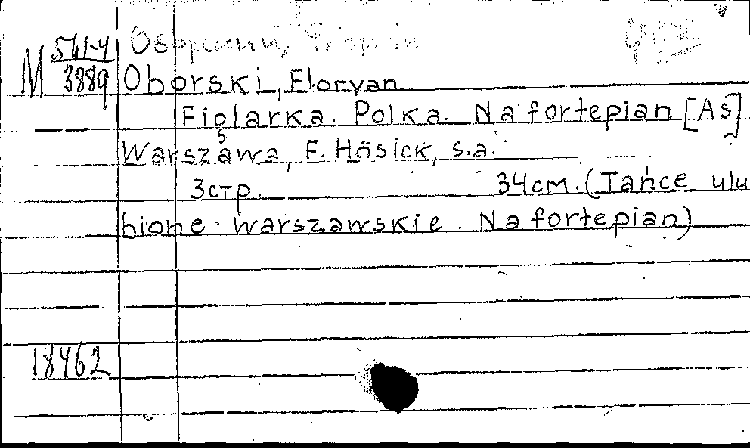 М 561-4
3889
Oborski, Floryan
Fiolarka. Polka. Na fortepian [As]
Warszawa, F. Hösick, s.a.
3стр. 34см. (Tańce ulu
bione warszawskie. Na fortepian)
18462